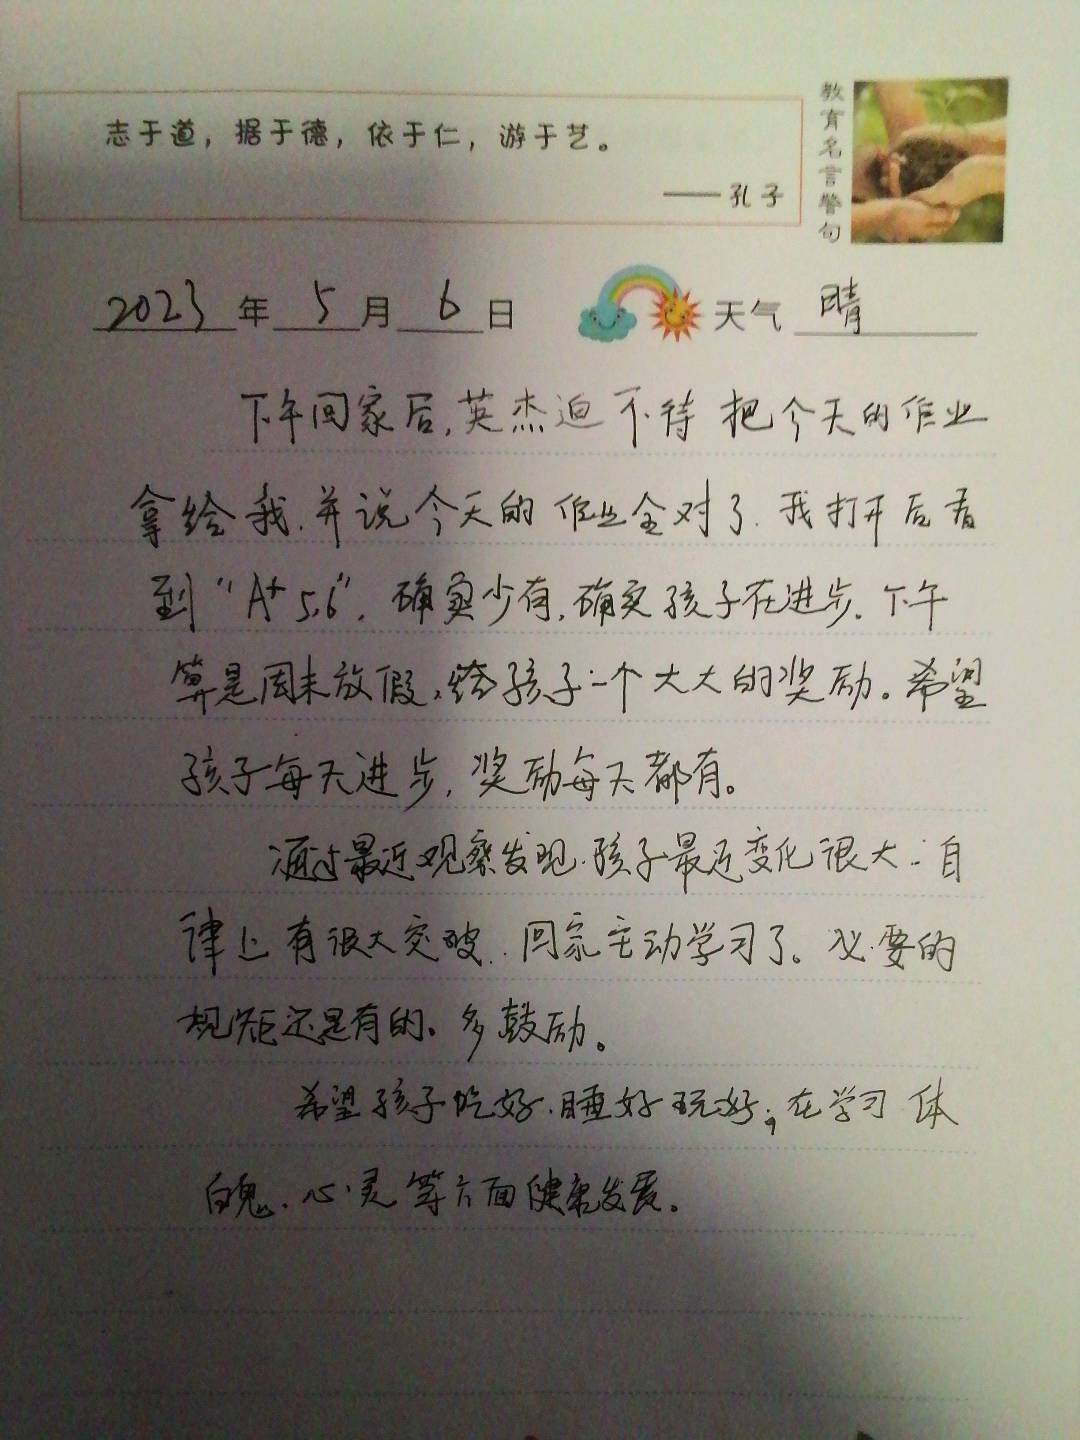 志于道，据于德，依于仁，游于艺。
——孔子
教育名言警句
2023年5月6日 天气 晴
下午回家后,英杰迫不待把今天的作业
拿给我.并说今天的作业全对了.我打开后看
到"A+ 5.6".确实少有,确实孩子在进步.下午
算是周末放假,给孩子一个大大的奖励。希望
孩子每天进步,奖励每天都有。
通过最近观察发现.孩子最近变化很大:自
律上有很大突破.回家主动学习了。必要的
规矩还是有的。多鼓励。
希望孩子吃好.睡好玩好;在学习 体
魄.心灵等方面健康发展。